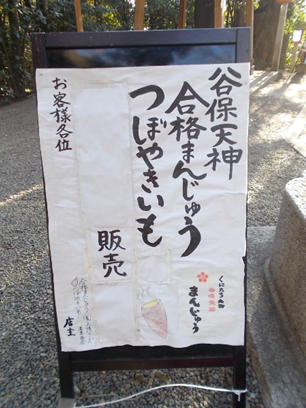 谷保天神
合格まんじゅう
つぼやきいも
販売
お客様各位
店主
まんじゅう